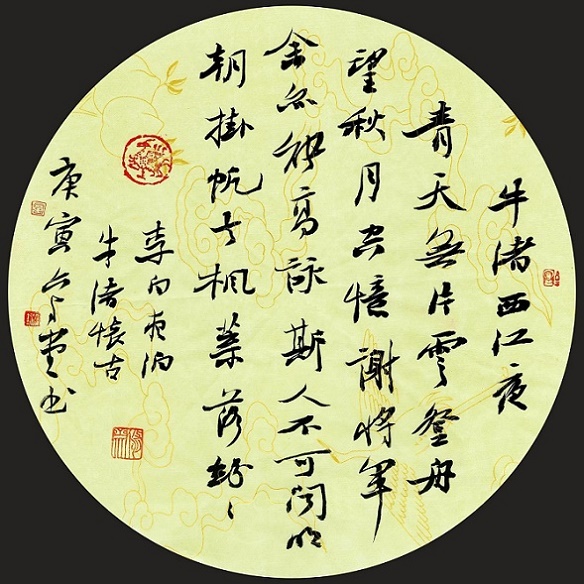 牛渚西江夜
青天無片雲登舟
望秋月空憶謝將軍
余亦能高詠斯人不可聞明
朝掛帆去楓葉落紛〻
李白夜泊
牛渚懷古
庚寅书